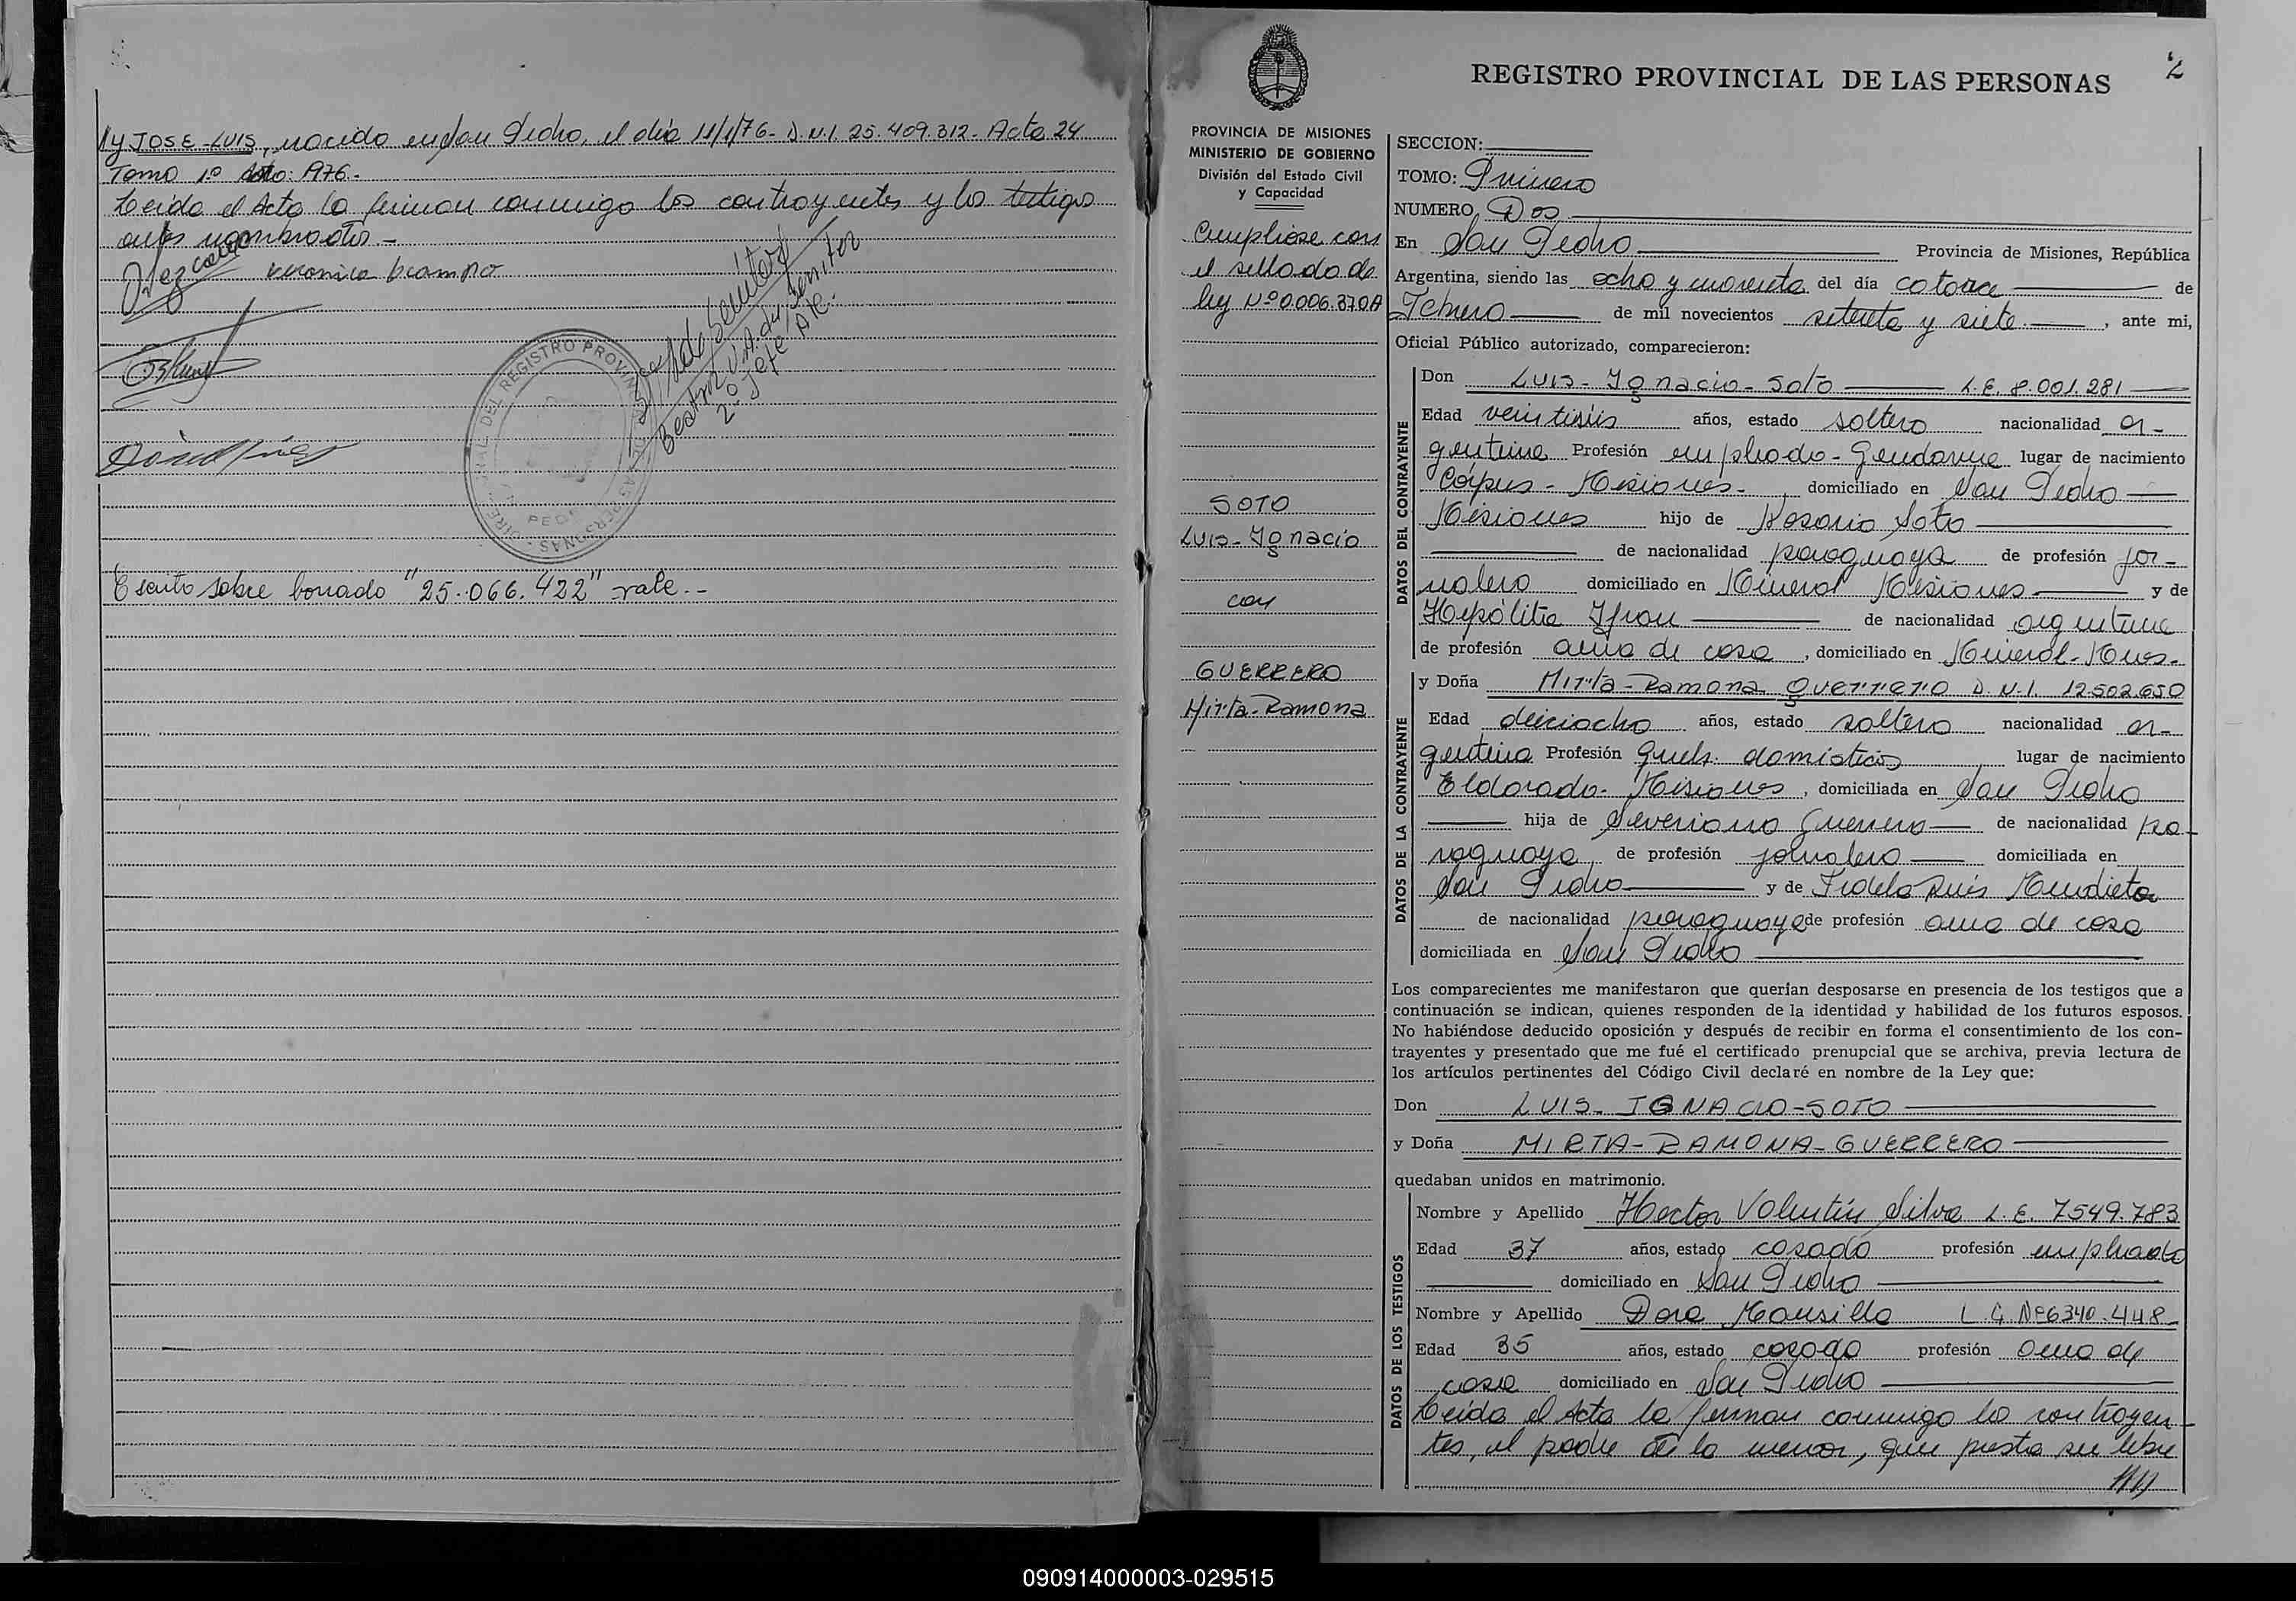 y JOSE-LUIS, nacido en San Pedro, el día 11/1/76- D.N.I. 25.409.312- Acta 24
Tomo 1º Año: 1976.-
Leida el Acta la firman conmigo los contrayentes y los testigos
antes nombrados.-
veronica ocampo
Beatriz V.A. de Semitor
2º Jefe
DIRE
RAL DEL REGISTRO PROVIN
PERSONAS
Escrito sobre borrado "25.066.422" vale.-
2
REGISTRO PROVINCIAL DE LAS PERSONAS
PROVINCIA DE MISIONES
MINISTERIO DE GOBIERNO
División del Estado Civil
y Capacidad
Cumpliose con
el sellado de
ley Nº 0.006.370A
SOTO
Luis-Ignacio
con
GUERRERO
Mirta-Ramona
SECCION:
TOMO: Primero
NUMERO Dos
En San Pedro Provincia de Misiones, República
Argentina, siendo las ocho y cuarenta del día catorce de
Febrero de mil novecientos setenta y siete, ante mi,
Oficial Público autorizado, comparecieron:
DATOS DEL CONTRAYENTE
Don Luis-Ignacio-Soto L.E. 8.001.281
Edad veintiséis años, estado soltero nacionalidad ar-
gentina Profesión empleado-Gendarme lugar de nacimiento
Córpus-Misiones-, domiciliado en San Pedro
Misiones hijo de Rosario Soto
de nacionalidad paraguaya de profesión jor-
nalero domiciliado en Mineral Misiones y de
Hipólita Ifran de nacionalidad argentina
de profesión ama de casa, domiciliado en Mineral-Mnes.-
DATOS DE LA CONTRAYENTE
y Doña Mirta-Ramona Guerrero D.N.I. 12.502.650
Edad dieciocho años, estado soltera nacionalidad ar-
gentina Profesión Queh. domésticos lugar de nacimiento
Eldorado-Misiones, domiciliada en San Pedro
hija de Severiano Guerrero de nacionalidad pa-
raguaya de profesión jornalero domiciliada en
San Pedro y de Fidela Ruis Mendieta
de nacionalidad paraguaya de profesión ama de casa
domiciliada en San Pedro
Los comparecientes me manifestaron que querían desposarse en presencia de los testigos que a
continuación se indican, quienes responden de la identidad y habilidad de los futuros esposos.
No habiéndose deducido oposición y después de recibir en forma el consentimiento de los con-
trayentes y presentado que me fué el certificado prenupcial que se archiva, previa lectura de
los artículos pertinentes del Código Civil declaré en nombre de la Ley que:
Don LUIS-IGNACIO-SOTO
y Doña MIRTA-RAMONA-GUERRERO
quedaban unidos en matrimonio.
DATOS DE LOS TESTIGOS
Nombre y Apellido Hector Valentín Silva L.E. 7549.783
Edad 37 años, estado casado profesión empleado
domiciliado en San Pedro
Nombre y Apellido Dora Mansilla L.C. Nº 6340.448-
Edad 35 años, estado casada profesión ama de
casa domiciliado en San Pedro
Leida el Acta la firman conmigo los contrayen-
tes, el padre de la menor, que presta su libre
////
090914000003-029515